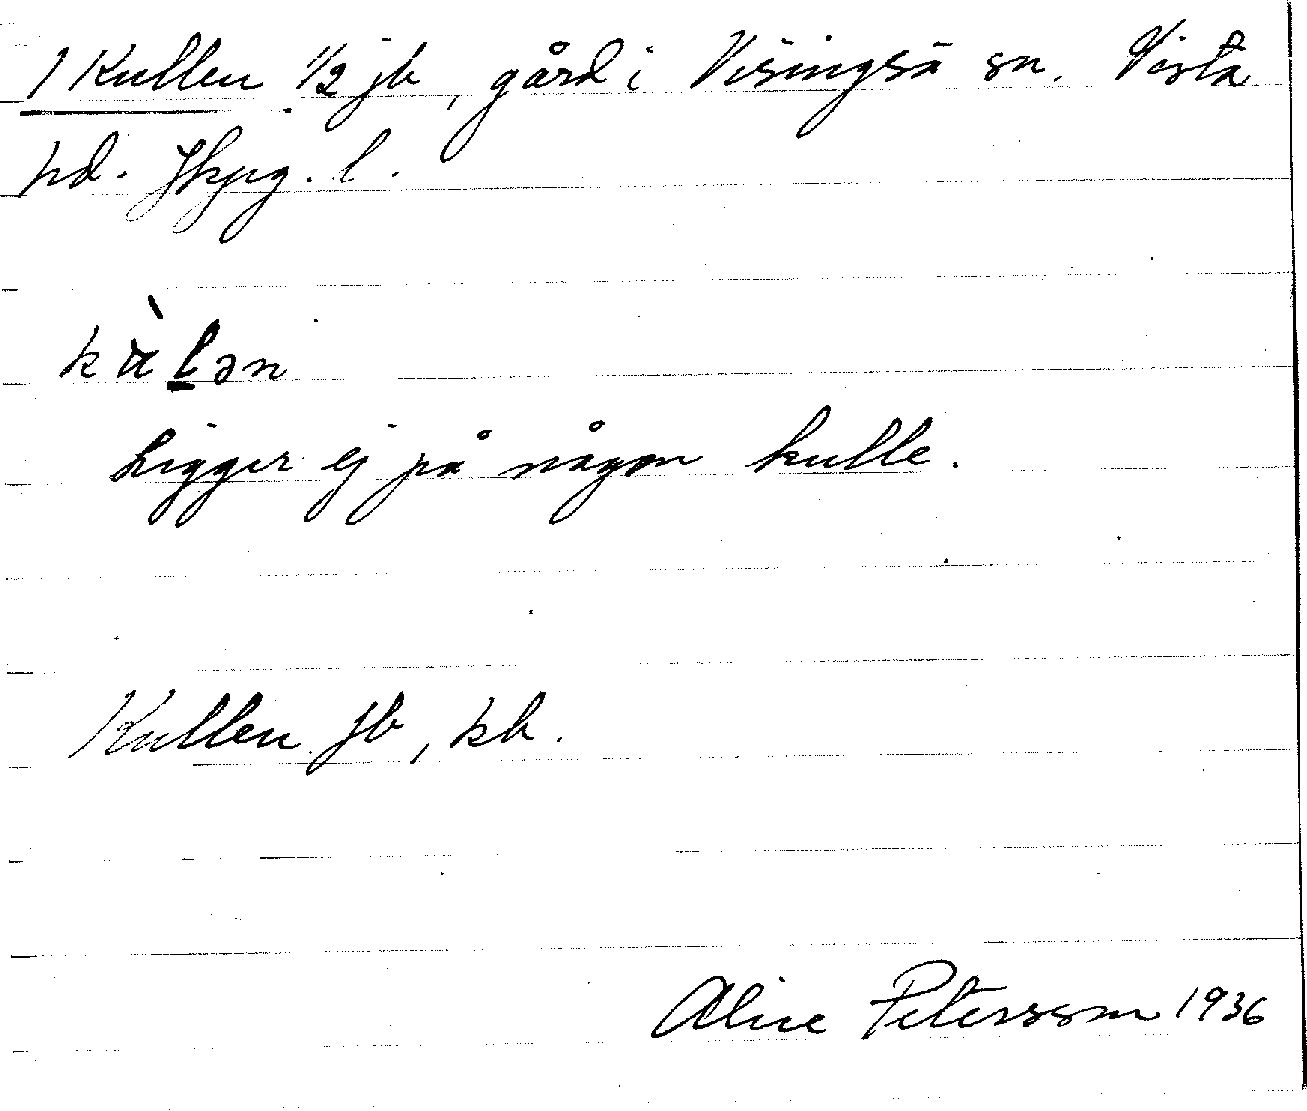 1 Kullen 1/2 jb, gård i Visingsö sn. Vista
hd. Jkpg. l.
kàlən
Ligger ej på någon kulle.
Kullen jb, kb.
Alice Petersson 1936